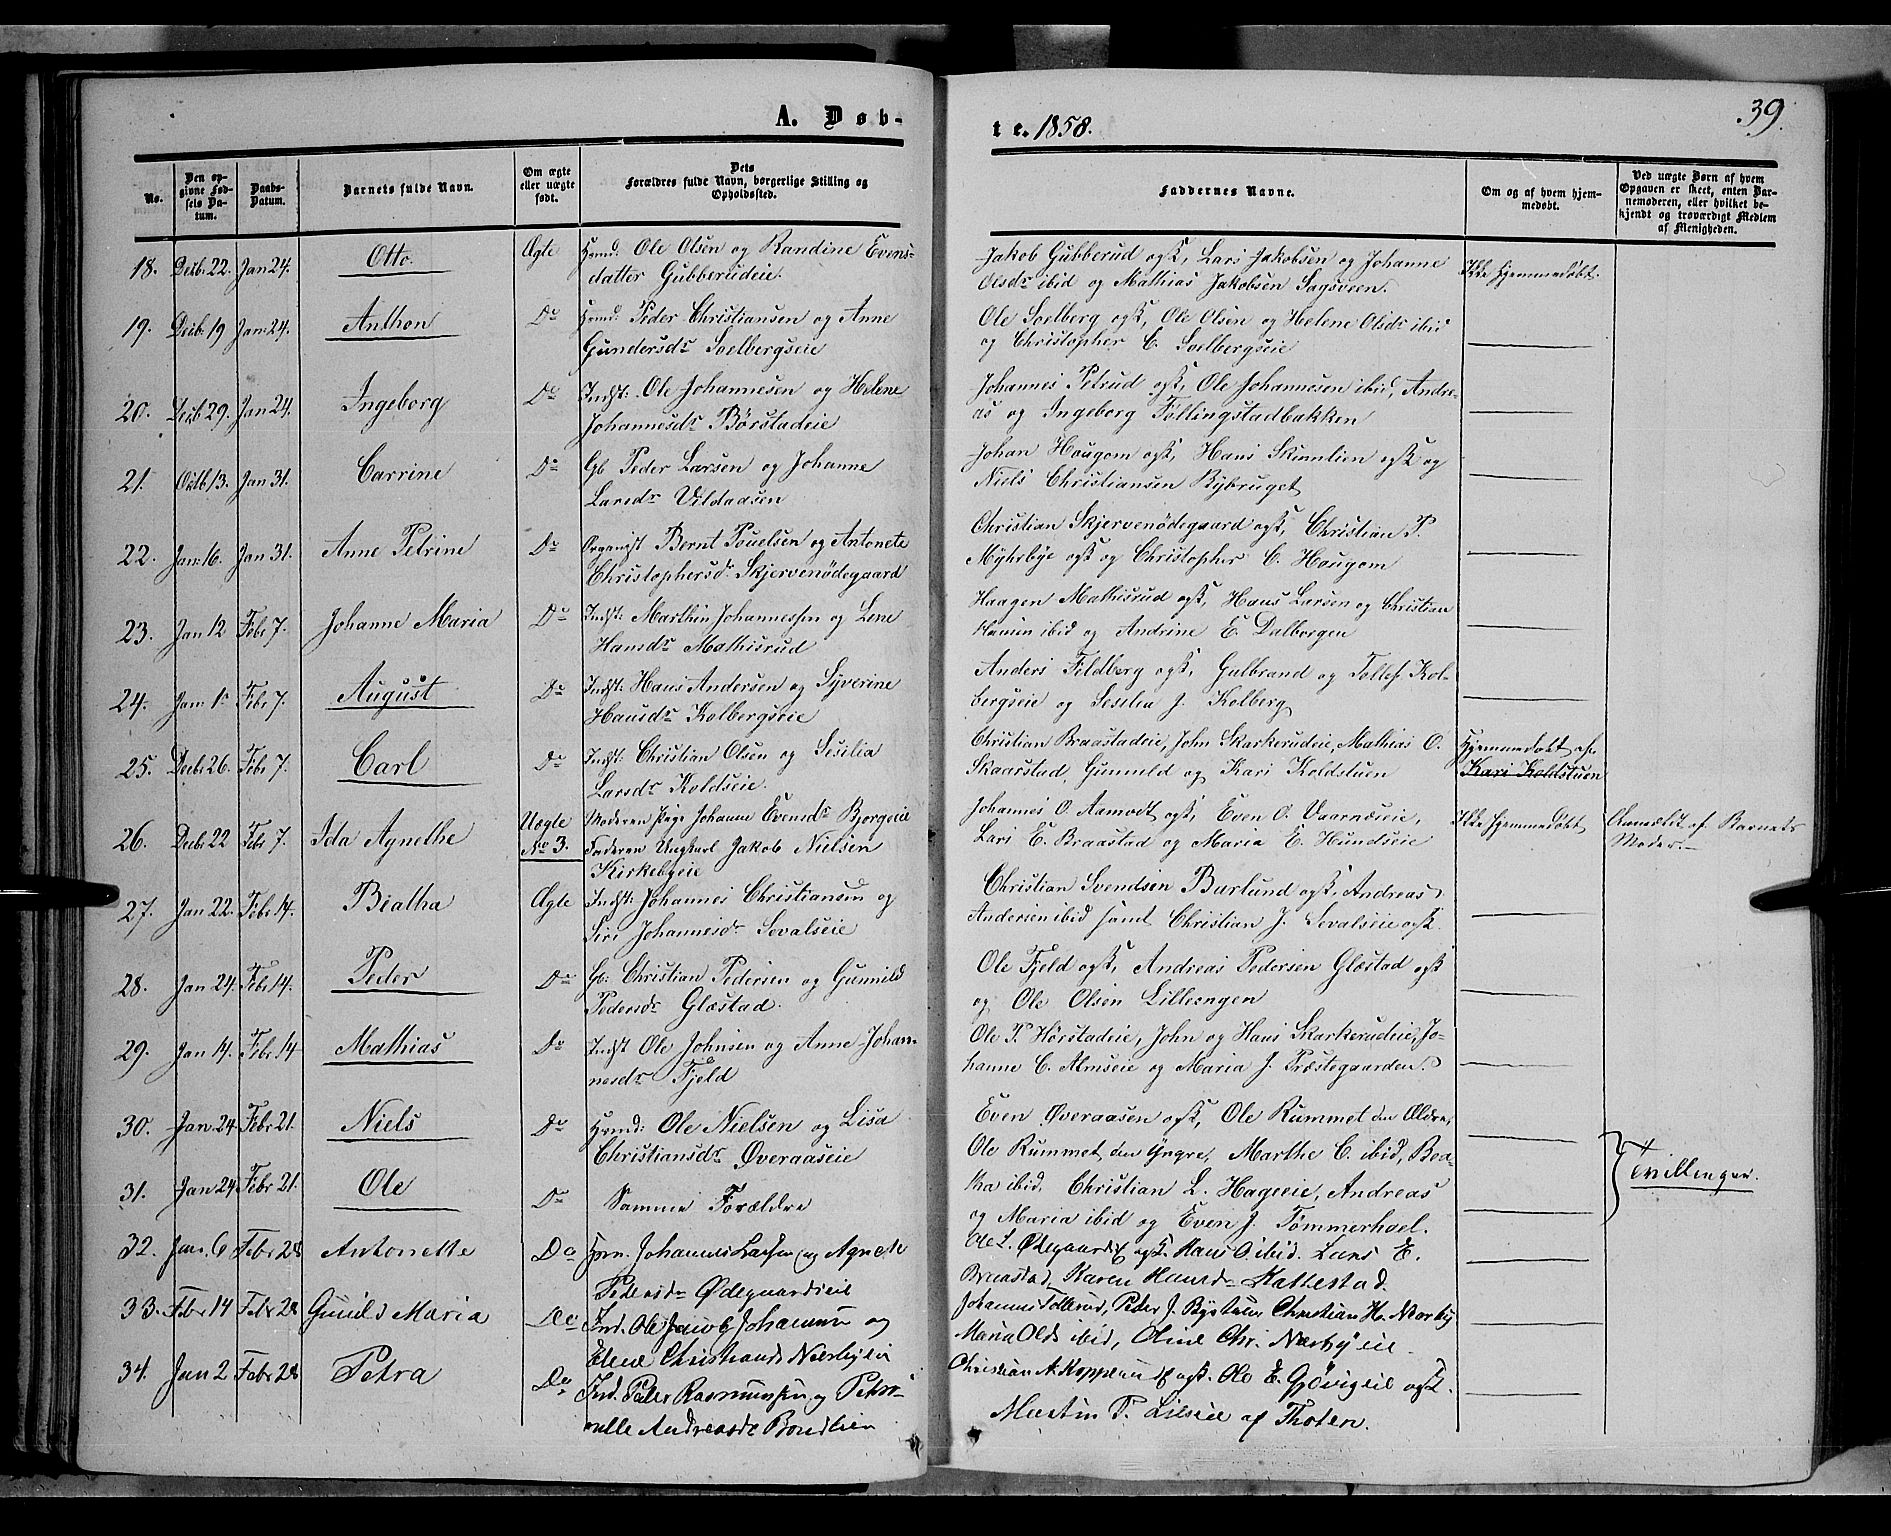 A. Døb-
te. 1858.
39.
No.
Den op-
givne Fød-
sels Da-
tum.
Daabs-
Datum.
Barnets fulde Navn.
Om ægte
eller uægte
født.
Dets
Forældres fulde Navn, borgerlige Stilling og
Opholdssted.
Faddernes Navne.
Om og af hvem hjem-
medøbt.
Ved uægte Børn af hvem
Opgaven er skeet, enten Bar-
nemoderen, eller hvilket be-
kjendt og troværdigt Medlem
af Menigheden.
18. Decb. 22. Jan 24. Otto. Ægte Hmd. Ole Olsen og Randine Evens-
datter Gubberudeie.
Jakob Gubberud ogk, Lars Jakobsen og Johanne
Olsdr ibid og Mathias Jakobsen Sagsveen.
Ikke hjemmedøbt.
19. Decb. 19 Jan. 24. Anthon Do Hmd. Peder Christiansen og Anne
Gundersdr Soelbergseie
Ole Soelberg ogk, Ole Olsen og Helene Olsdr ibid
og Christopher C. Soelbergseie
20. Decb 29. Jan 24. Ingeborg Do Indst: Ole Johannesen og Helene
Johannesdr Børstadeie
Johannes Petrud ogk, Ole Johannesen ibid, Andre-
as og Ingeborg Føllingstadbakken
21. Octb. 13. Jan 31. Carrine Do Gb Peder Larsen og Johanne
Larsdr Vildaasen
Johan Hougom ogk, Hans Skumlien ogk og
Niels Christiansen Bybruget
22. Jan. 16. Jan 31. Anne Petrine Do Organist Bernt Pouelsen og Antonete
Christophersdr Skjervenødegaard
Christian Skjervenødegaard ogk, Christian P.
Myhrbye ogk og Christopher C. Hougom
23. Jan 12. Febr 7. Johanne Maria Do Indst: Marthin Johannessen og Lene
Hansdr Mathisrud
Haagen Mathisrud ogk, Hans Larsen og Christian
Hansen ibid og Andrine E. Dalborgen
24. Jan. 1. Febr 7. August Do Indst: Hans Andersen og Syverine
Hansdr Kolbergseie
Anders Fildberg ogk, Gulbrand og Tollef Kol-
bergseie og Sesilia J. Kolberg
25. Decb. 26. Febr 7. Carl Do Indst: Christian Olsen og Sesilia
Larsdr Koldseie.
Christian Braastadeie, John Skarkerudeie, Mathias O.
Skaarstad, Gunnild og Kari Koldstuen
Hjemmedøbt af
Kari Koldstuen
26. Decbr 22 Febr 7. Ida Agnethe Uægte
No 3.
Moderen Pige Johanne Evensdr Bjorgeie
Faderen Ungkarl Jakob Nielsen
Kirkebyeie
Johannes O. Aamodt ogk, Even O. Vaarnæseie,
Lars E. Braastad og Maria E. Hundseie
Ikke hjemmedøbt
Anmeldt af Barnets
Moder.
27. Jan 22. Febr 14. Beatha Ægte Indst: Johannes Christiansen og
Siri Johannesdr Sovalseie
Christian Svendsen Burlund ogk. Andreas
Andersen ibid samt Christian J. Sovalseie ogk.
28. Jan 24. Febr 14. Peder Do Gb: Christian Pedersen og Gunnild
Pedersdr Glæstad.
Ole Fjeld ogk, Andreas Pedersen Glæstad ogk
og Ole Olsen Lilleengen
29. Jan 14. Febr 14 Mathias Do Indst Ole Johnsen og Anne Johan-
nesdr Fjeld
Ole P. Hørstadeie, John og Hans Skarkerudeie, Jo-
hanne C. Almseie og Maria J. Præstegaarden.
30. Jan. 24. Febr 21. Niels Do Hmd: Ole Nielsen og Lisa
Christiansdr Øveraaseie
Even Øveraasen ogk, Ole Rummet den Ældre,
Ole Rummet den Yngre, Marthe C. ibid, Bea-
31. Jan 24. Febr 21. Ole Do Samme Forældre
tha ibid, Christian L. Hageeie, Andreas
og Maria ibid og Even J. Tømmerhoel.
Tvillinger.
32. Jan. 6 Febr 28 Antonette Do Hm. Johannes Larsen og Agnete
Pedersdr Ødegaardseie
Ole L. Ødegaard ogk. Hans O ibid. Lars E.
Braastad, Karen Hansdr Kattestad.
33. Febr 14 Febr 28 Gunild Maria Do Ind. Ole Jacob Johannsen og
Elene Christiansd Nærbyeie
Johannes Tollerud, Peder J. Bystuen Christian H. Nærby
Maria Olsd ibid, Oline Chr. Nærbyeie.
34. Jan 2 Febr 28 Petra Do Ind. Peder Rasmussen og Petro-
nelle Andreasdr Bondlien
Christian A. Kopperud ogk. Ole E. Gjøvigeie ogk.
Martin P. Lilseie af Thoten.